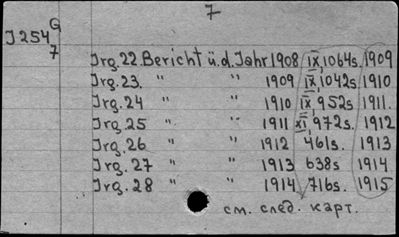 7
J 254 G
7
Jrg. 22. Bericht ü.d. Jahr 1908 IX, 1064s. 1909
Jrg. 23. " " 1909 IX, 1042s. 1910
Jrg. 24 " " 1910 IX, 952s. 1911.
Jrg. 25 " " 1911 XI, 972s. 1912
Jrg. 26 " " 1912 461s. 1913
Jrg. 27 " " 1913 638s 1914
Jrg. 28 " " 1914 716s. 1915
см. след. карт.